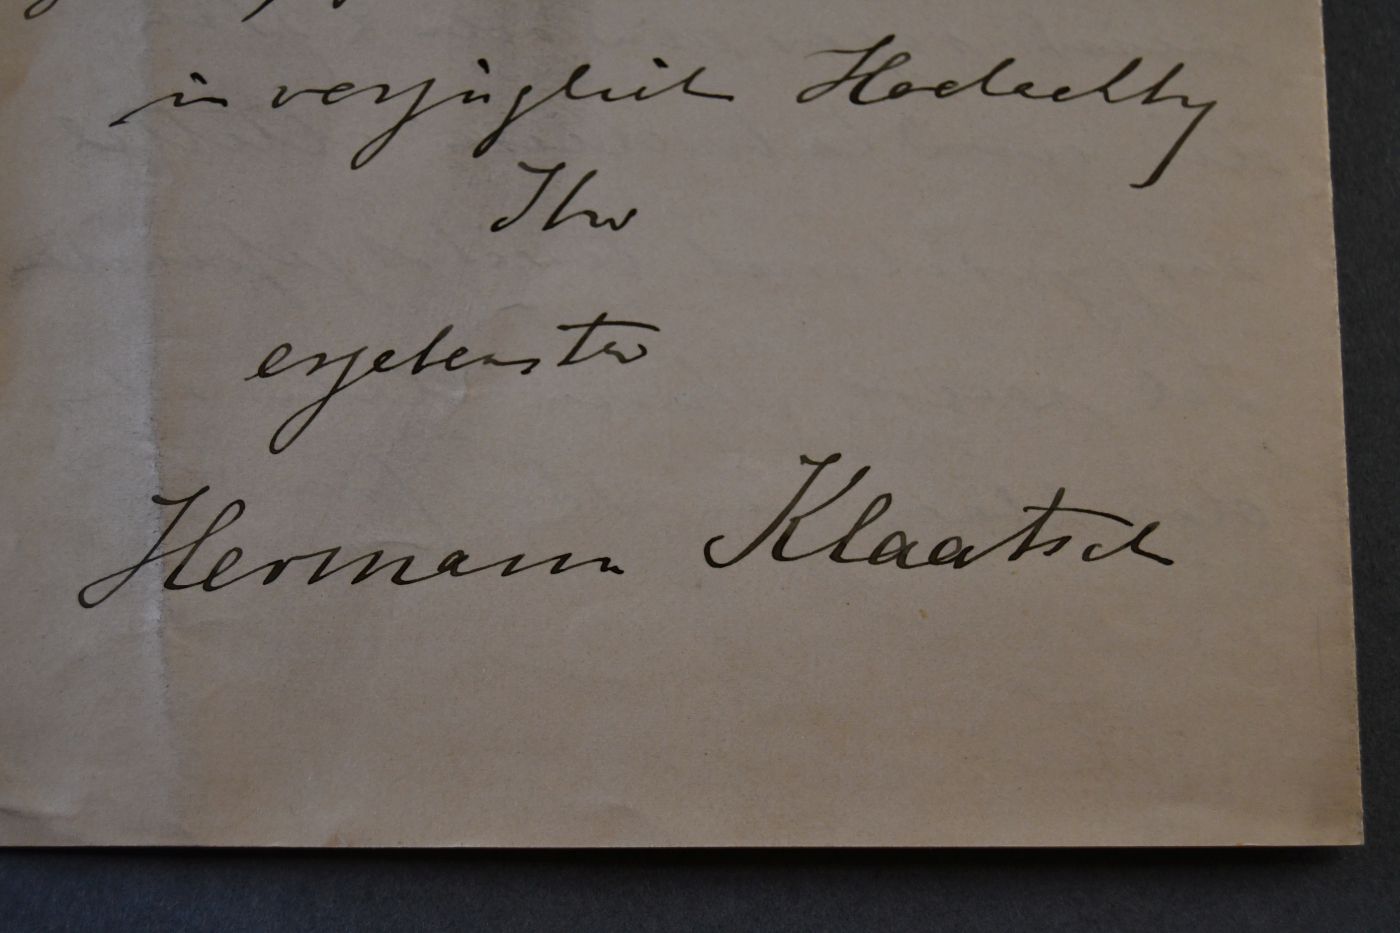 in vorzüglich Hochachtg
Ihr
ergebenster
Hermann Klaatsch